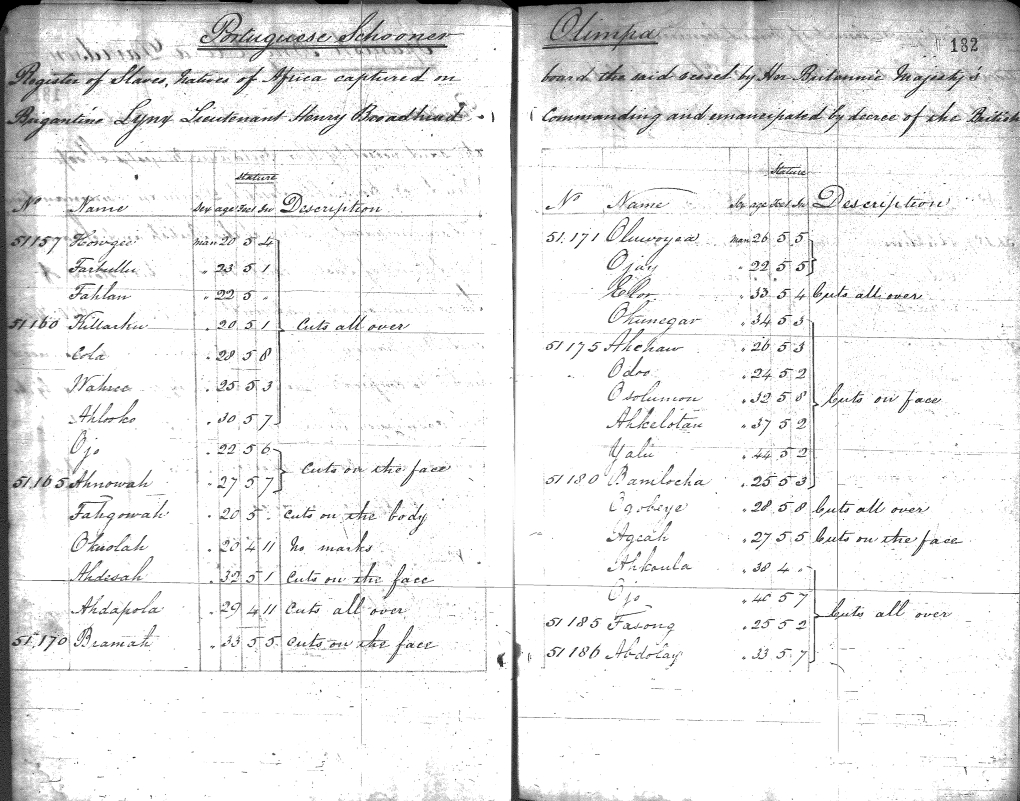 Portuguese Schooner
Register of Slaves, Natives of Africa captured on
Brigantine Lynx Lieutenant Henry Broadhead
Stature
No Name Sex age Feet In Description
51157 Howgee man 20 5 4
Farbullu " 23 5 1
Fahlan " 22 5 "
51160 Killarku " 20 5 1 Cuts all over
Cola " 28 5 8
Wahree " 25 5 3
Ahlooko " 30 5 7
Ojo " 22 5 6
Cuts on the face
51,165 Ahnowah " 27 5 7
Fahgowah " 20 5 " Cuts on the body
Okuolah " 20 4 11 No marks
Ahdesah " 32 5 1 Cuts on the face
Ahdapola " 29 4 11 Cuts all over
51,170 Beamah " 33 5 5 Cuts on the face
Olimpa
132
board the said vessel by Her Britannic Majesty's
Commanding and emancipated by decree of the British
Stature
No Name Sex age Feet In Description
51.171 Oluwoyea man 26 5 5
Ojay " 22 5 5
Elor " 33 5 4 Cuts all over
Okunegar " 34 5 3
51175 Ahchaw " 26 5 3
Odoo " 24 5 2
Osolumon " 32 5 8 Cuts on face
Ahkelotan " 37 5 2
Yalu " 44 5 2
51180 Bamlocha " 25 5 3
Ogobeye " 28 5 8 Cuts all over
Ageah " 27 5 5 Cuts on the face
Ahkoula " 38 4 "
Ojo " 40 5 7
Cuts all over
51185 Fasong " 25 5 2
51186 Abdolay " 33 5 7